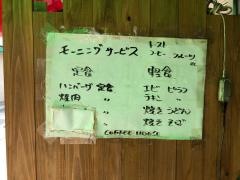 モーニングサービス
トースト
コーヒー フルーツ
定食
軽食
ハンバーグ 定食
エビ ピラフ
焼肉 〃
チキン 〃
〃
焼きうどん
〃
焼きそば
COFFEE HOUSE